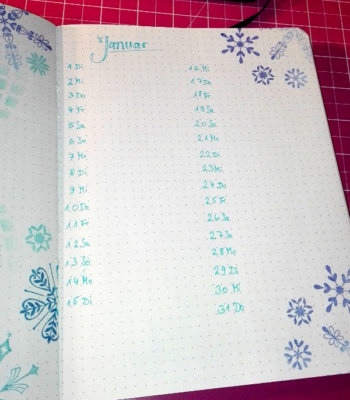 Januar
1 Di
2 Mi
3 Do
4 Fr
5 Sa
6 So
7 Mo
8 Di
9 Mi
10 Do
11 Fr
12 Sa
13 So
14 Mo
15 Di
16 Mi
17 Do
18 Fr
19 Sa
20 So
21 Mo
22 Di
23 Mi
24 Do
25 Fr
26 Sa
27 So
28 Mo
29 Di
30 Mi
31 Do